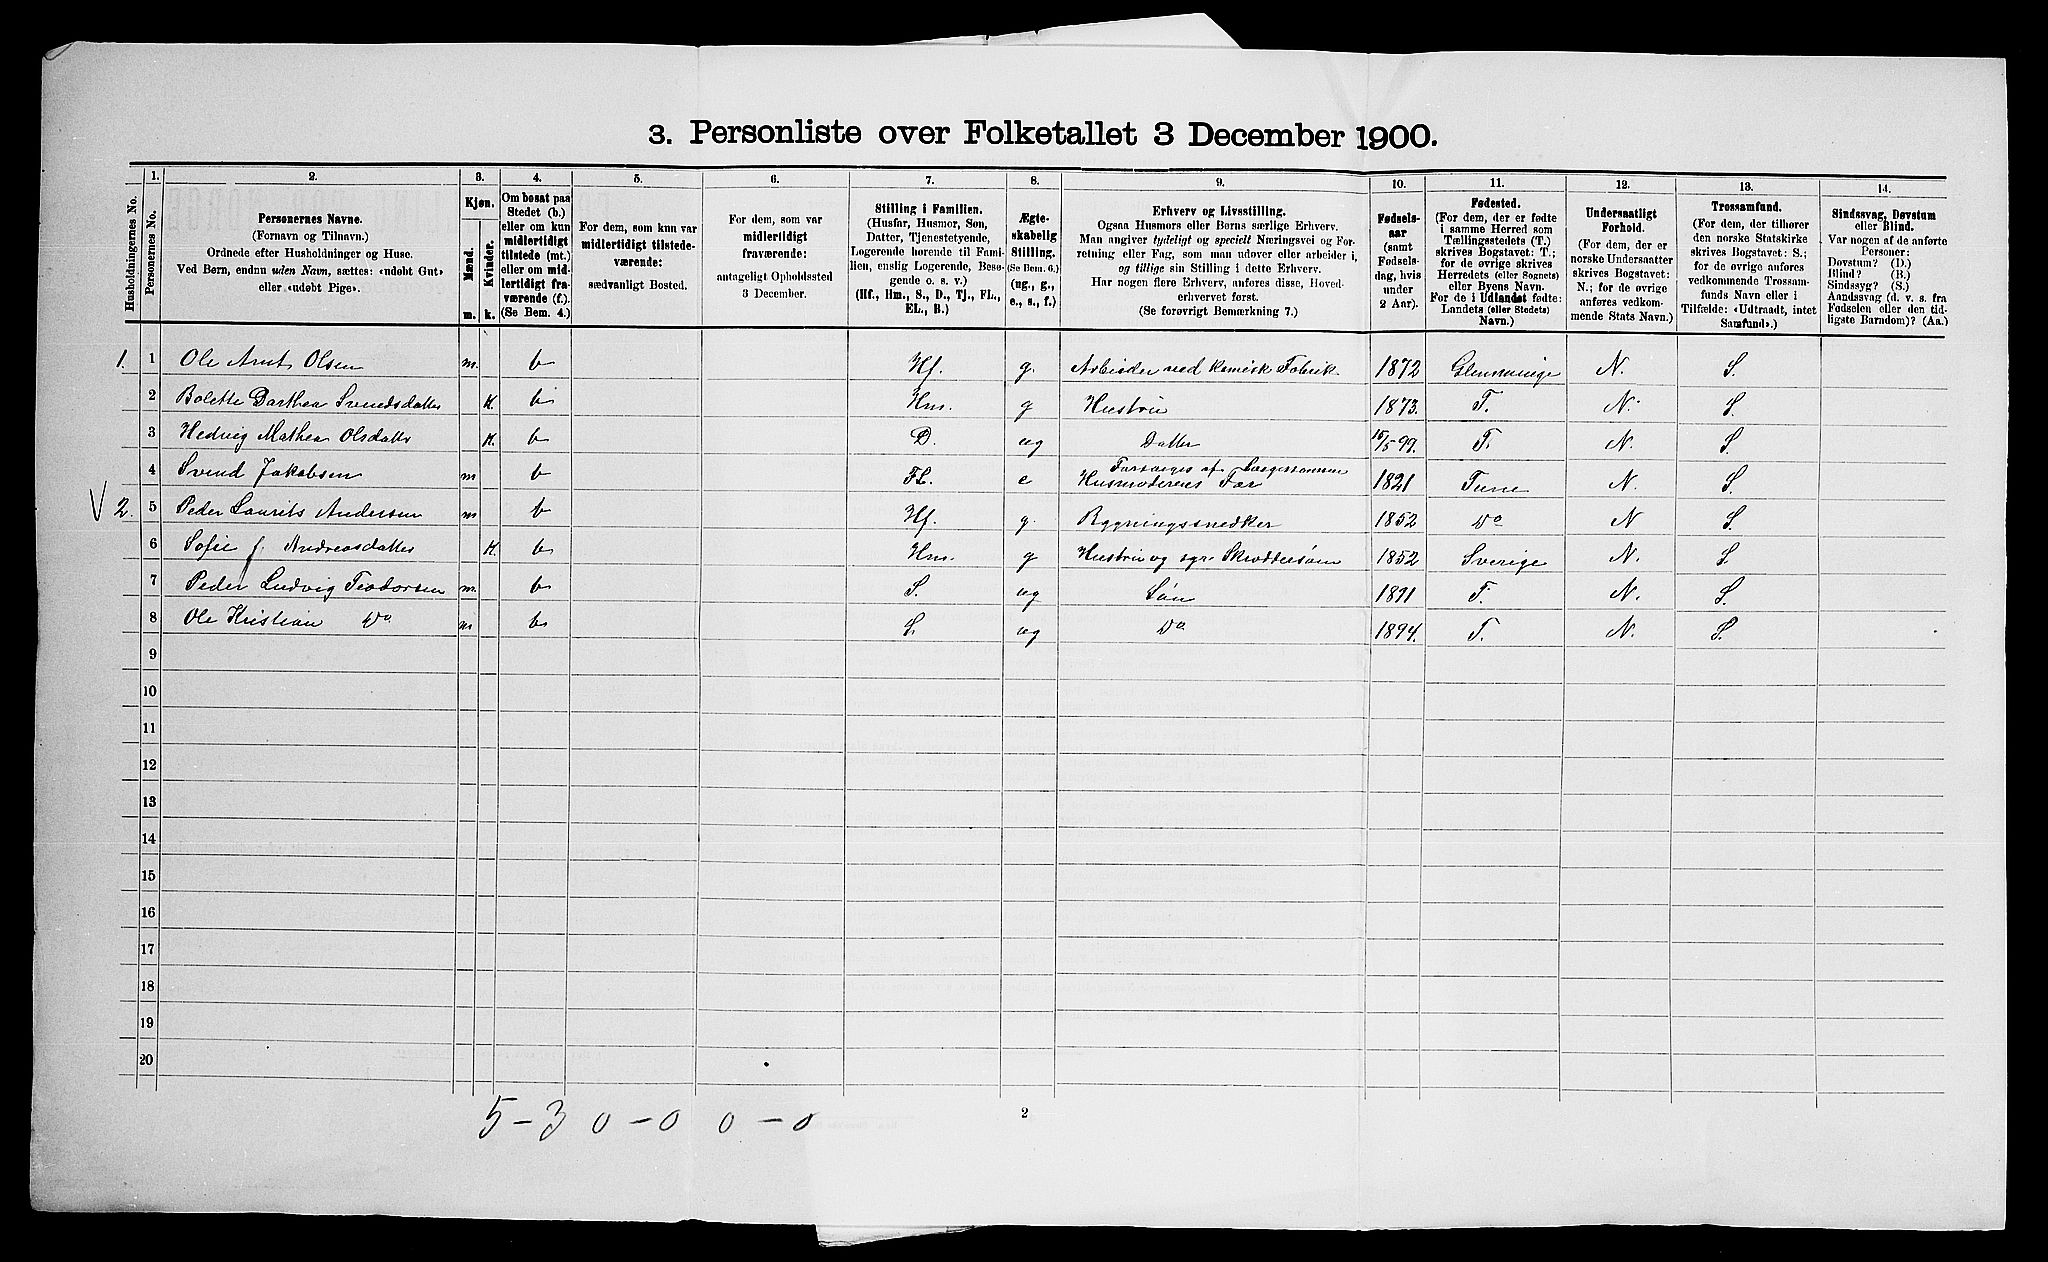 3. Personliste over Folketallet 3 December 1900.
Husholdningernes No.
1.
Personernes No.
2.
Personernes Navne.
(Fornavn og Tilnavn.)
Ordnede efter Husholdninger og Huse.
Ved Børn, endnu uden Navn, sættes: «udøbt Gut»
eller «udøbt Pige».
3.
Kjøn.
Mænd.
Kvinder.
m.
k.
4.
Om bosat paa
Stedet (b.)
eller om kun
midlertidigt
tilstede (mt.)
eller om mid-
lertidigt fra-
værende (f.).
(Se Bem. 4.)
5.
For dem, som kun var
midlertidigt tilstede-
værende:
sædvanligt Bosted.
6.
For dem, som var
midlertidigt
fraværende:
antageligt Opholdssted
3 December.
7.
Stilling i Familien.
(Husfar, Husmor, Søn,
Datter, Tjenestetyende,
Logerende hørende til Fami-
lien, enslig Logerende, Besø-
gende o. s. v.)
(Hf., Hm., S., D., Tj., FL.,
EL., B.)
8.
Ægte-
skabelig
Stilling.
(Se Bem. 6.)
(ug., g.,
e., s., f.)
9.
Erhverv og Livsstilling.
Ogsaa Husmors eller Børns særlige Erhverv.
Man angiver tydeligt og specielt Næringsvei og For-
retning eller Fag, som man udøver eller arbeider i,
og tillige sin Stilling i dette Erhverv.
Har nogen flere Erhverv, anføres disse, Hoved-
erhvervet først.
(Se forøvrigt Bemærkning 7.)
10.
Fødsels-
aar
(samt
Fødsels-
dag, hvis
under
2 Aar).
11.
Fødested.
(For dem, der er fødte
i samme Herred som
Tællingsstedets (T.)
skrives Bogstavet: T.;
for de øvrige skrives
Herredets (eller Sognets)
eller Byens Navn.
For de i Udlandet fødte:
Landets (eller Stedets)
Navn.)
12.
Undersaatligt
Forhold.
(For dem, der er
norske Undersaatter
skrives Bogstavet:
N.; for de øvrige
anføres vedkom-
mende Stats Navn.)
13.
Trossamfund.
(For dem, der tilhører
den norske Statskirke
skrives Bogstavet: S.;
for de øvrige anføres
vedkommende Trossam-
funds Navn eller i
Tilfælde: «Udtraadt, intet
Samfund».)
14.
Sindssvag, Døvstum
eller Blind.
Var nogen af de anførte
Personer:
Døvstum? (D.)
Blind? (B.)
Sindssyg? (S.)
Aandssvag (d. v. s. fra
Fødselen eller den tid-
ligste Barndom)? (Aa.)
1. 1 Ole Arnt Olsen m. b Hf. g. Arbeider ved kemisk Fabrik. 1872 Glemminge N. S.
2 Bolette Darthea Svendsdatter K. b Hm. g Hustru 1873. T. N. S.
3 Hedvig Mathea Olsdatter K. b D. ug Datter 15/5 99. T. N. S.
4 Svend Jakobsen m b FL. e Forsørges af Husmoderens Far 1821 Tune N. S.
V 2. 5 Peder Laurits Andersen m b Hf. g. Bygningssnedker 1852 Do N S.
6 Sofie f. Andreasdatter K. b Hm. g Hustru og syr Skræddersøm 1852 Sverige N. S.
7 Peder Ludvig Teodorsen m. b S. ug Søn 1891 T. N. S.
8 Ole Kristian Do m b S. ug Do 1894. T. N. S.
9
10
11
12
13
14
15
16
17
18
19
20
5-3 0-0 0-0
2